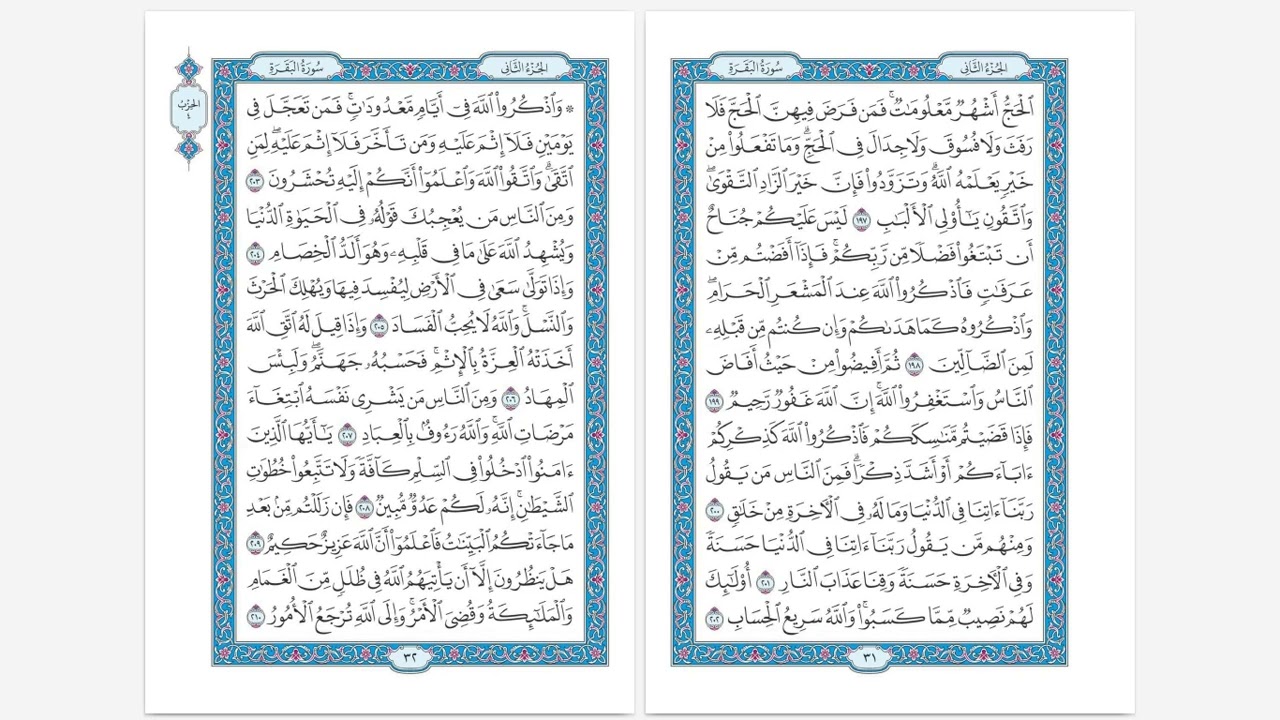 الجُزْءُ الثَّانِي
سُورَةُ البَقَرَةِ
ٱلْحَجُّ أَشْهُرٌ مَّعْلُومَٰتٌ ۚ فَمَن فَرَضَ فِيهِنَّ ٱلْحَجَّ فَلَا
رَفَثَ وَلَا فُسُوقَ وَلَا جِدَالَ فِى ٱلْحَجِّ ۗ وَمَا تَفْعَلُوا۟ مِنْ
خَيْرٍ يَعْلَمْهُ ٱللَّهُ ۗ وَتَزَوَّدُوا۟ فَإِنَّ خَيْرَ ٱلزَّادِ ٱلتَّقْوَىٰ ۚ
وَٱتَّقُونِ يَٰٓأُو۟لِى ٱلْأَلْبَٰبِ ١٩٧ لَيْسَ عَلَيْكُمْ جُنَاحٌ
أَن تَبْتَغُوا۟ فَضْلًا مِّن رَّبِّكُمْ ۚ فَإِذَآ أَفَضْتُم مِّنْ
عَرَفَٰتٍ فَٱذْكُرُوا۟ ٱللَّهَ عِندَ ٱلْمَشْعَرِ ٱلْحَرَامِ ۖ
وَٱذْكُرُوهُ كَمَا هَدَىٰكُمْ وَإِن كُنتُم مِّن قَبْلِهِۦ
لَمِنَ ٱلضَّآلِّينَ ١٩٨ ثُمَّ أَفِيضُوا۟ مِنْ حَيْثُ أَفَاضَ
ٱلنَّاسُ وَٱسْتَغْفِرُوا۟ ٱللَّهَ ۚ إِنَّ ٱللَّهَ غَفُورٌ رَّحِيمٌ ١٩٩
فَإِذَا قَضَيْتُم مَّنَٰسِكَكُمْ فَٱذْكُرُوا۟ ٱللَّهَ كَذِكْرِكُمْ
ءَابَآءَكُمْ أَوْ أَشَدَّ ذِكْرًا ۗ فَمِنَ ٱلنَّاسِ مَن يَقُولُ
رَبَّنَآ ءَاتِنَا فِى ٱلدُّنْيَا وَمَا لَهُۥ فِى ٱلْءَاخِرَةِ مِنْ خَلَٰقٍ ٢٠٠
وَمِنْهُم مَّن يَقُولُ رَبَّنَآ ءَاتِنَا فِى ٱلدُّنْيَا حَسَنَةً
وَفِى ٱلْءَاخِرَةِ حَسَنَةً وَقِنَا عَذَابَ ٱلنَّارِ ٢٠١ أُو۟لَٰٓئِكَ
لَهُمْ نَصِيبٌ مِّمَّا كَسَبُوا۟ ۚ وَٱللَّهُ سَرِيعُ ٱلْحِسَابِ ٢٠٢
٣١
الجُزْءُ الثَّانِي
سُورَةُ البَقَرَةِ
الحِزْبُ
٤
۞ وَٱذْكُرُوا۟ ٱللَّهَ فِىٓ أَيَّامٍ مَّعْدُودَٰتٍ ۚ فَمَن تَعَجَّلَ فِى
يَوْمَيْنِ فَلَآ إِثْمَ عَلَيْهِ وَمَن تَأَخَّرَ فَلَآ إِثْمَ عَلَيْهِ ۚ لِمَنِ
ٱتَّقَىٰ ۗ وَٱتَّقُوا۟ ٱللَّهَ وَٱعْلَمُوٓا۟ أَنَّكُمْ إِلَيْهِ تُحْشَرُونَ ٢٠٣
وَمِنَ ٱلنَّاسِ مَن يُعْجِبُكَ قَوْلُهُۥ فِى ٱلْحَيَوٰةِ ٱلدُّنْيَا
وَيُشْهِدُ ٱللَّهَ عَلَىٰ مَا فِى قَلْبِهِۦ وَهُوَ أَلَدُّ ٱلْخِصَامِ ٢٠٤
وَإِذَا تَوَلَّىٰ سَعَىٰ فِى ٱلْأَرْضِ لِيُفْسِدَ فِيهَا وَيُهْلِكَ ٱلْحَرْثَ
وَٱلنَّسْلَ ۗ وَٱللَّهُ لَا يُحِبُّ ٱلْفَسَادَ ٢٠٥ وَإِذَا قِيلَ لَهُ ٱتَّقِ ٱللَّهَ
أَخَذَتْهُ ٱلْعِزَّةُ بِٱلْإِثْمِ ۚ فَحَسْبُهُۥ جَهَنَّمُ ۖ وَلَبِئْسَ
ٱلْمِهَادُ ٢٠٦ وَمِنَ ٱلنَّاسِ مَن يَشْرِى نَفْسَهُ ٱبْتِغَآءَ
مَرْضَاتِ ٱللَّهِ ۗ وَٱللَّهُ رَءُوفٌۢ بِٱلْعِبَادِ ٢٠٧ يَٰٓأَيُّهَا ٱلَّذِينَ
ءَامَنُوا۟ ٱدْخُلُوا۟ فِى ٱلسِّلْمِ كَآفَّةً وَلَا تَتَّبِعُوا۟ خُطُوَٰتِ
ٱلشَّيْطَٰنِ ۚ إِنَّهُۥ لَكُمْ عَدُوٌّ مُّبِينٌ ٢٠٨ فَإِن زَلَلْتُم مِّنۢ بَعْدِ
مَا جَآءَتْكُمُ ٱلْبَيِّنَٰتُ فَٱعْلَمُوٓا۟ أَنَّ ٱللَّهَ عَزِيزٌ حَكِيمٌ ٢٠٩
هَلْ يَنظُرُونَ إِلَّآ أَن يَأْتِيَهُمُ ٱللَّهُ فِى ظُلَلٍ مِّنَ ٱلْغَمَامِ
وَٱلْمَلَٰٓئِكَةُ وَقُضِىَ ٱلْأَمْرُ ۚ وَإِلَى ٱللَّهِ تُرْجَعُ ٱلْأُمُورُ ٢١٠
٣٢